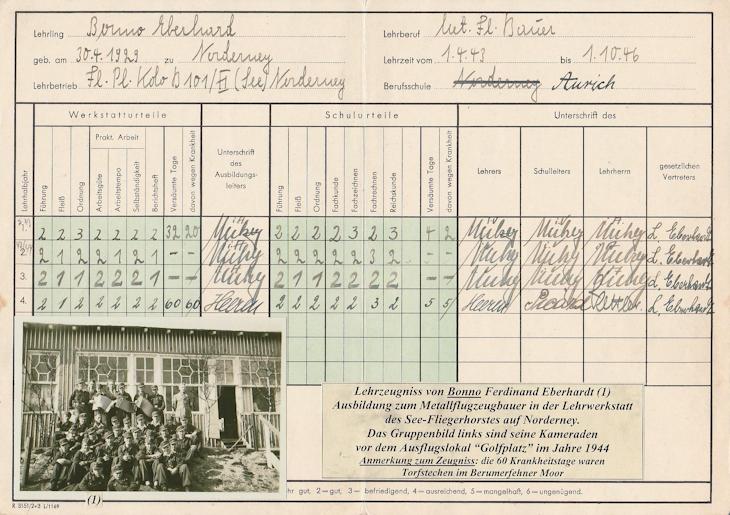 Lehrling Bonno Eberhard Lehrberuf Met. Fl. Bauer
geb. am 30.4.1929 zu Norderney Lehrzeit vom 1.4.43 bis 1.10.46
Lehrbetrieb Fl. Pl. Kdo B 101/XI (See) Norderney Berufsschule Norderney Aurich
Werkstatturteile Schulurteile Unterschrift des
Lehrhalbjahr Führung Fleiß Ordnung Prakt. Arbeit Arbeitsgüte Arbeitstempo Selbständigkeit Berichtsheft Versäumte Tage davon wegen Krankheit Unterschrift des Ausbildungsleiters Führung Fleiß Ordnung Fachkunde Fachzeichnen Fachrechnen Reichskunde Versäumte Tage davon wegen Krankheit Lehrers Schulleiters Lehrherrn gesetzlichen Vertreters
2 2 3 2 2 2 2 32 20 2 2 2 2 3 2 3 4 2 L. Eberhardt
2. 2 1 2 2 1 2 1 - - 2 1 2 2 2 3 2 - - L. Eberhardt
3. 2 1 1 2 2 2 1 - - 2 1 1 2 2 2 2 - - L. Eberhardt
4. 2 1 2 2 2 2 2 60 60 2 2 2 2 2 3 2 5 5 L. Eberhardt
Lehrzeugniss von Bonno Ferdinand Eberhardt (1)
Ausbildung zum Metallflugzeugbauer in der Lehrwerkstatt
des See-Fliegerhorstes auf Norderney.
Das Gruppenbild links sind seine Kameraden
vor dem Ausflugslokal "Golfplatz" im Jahre 1944
Anmerkung zum Zeugniss: die 60 Krankheitstage waren
Torfstechen im Berumerfehner Moor
(1)
hr gut, 2 — gut, 3 — befriedigend, 4 — ausreichend, 5 — mangelhaft, 6 — ungenügend.
R 5151/2+3 L/1169